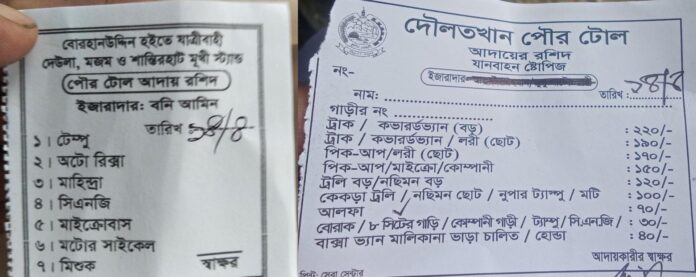 বোরহানউদ্দিন হইতে যাত্রীবাহী
দেউলা, মজম ও শান্তিরহাট মূখী স্ট্যান্ড
পৌর টোল আদায় রশিদ
ইজারাদার: বনি আমিন
তারিখ ১৪/৪
১। টেম্পু
২। অটো রিক্সা
৩। মাহিন্দ্রা
৪। সিএনজি
৫। মাইক্রোবাস
৬। মটোর সাইকেল
৭। মিশুক
স্বাক্ষর
দৌলতখান পৌর টোল
আদায়ের রশিদ
যানবাহন ষ্টোপিজ
নং-
ইজারাদার-
তারিখ : ১৪/৪
নাম:
গাড়ীর নং
ট্রাক / কভারর্ডভ্যান (বড়) : ২২০/-
ট্রাক / কভারর্ডভ্যান / লরী (ছোট) : ১৯০/-
পিক-আপ/লরী (ছোট) : ১৭০/-
পিক-আপ/মাইক্রো/কোম্পানী : ১৫০/-
ট্রলি বড়/নছিমন বড় : ১২০/-
কেকড়া ট্রলি / নছিমন ছোট / নুপার ট্যাম্পু / মটি : ১০০/-
আলফা : ৭০/-
বোরাক / ৮ সিটের গাড়ি / কোম্পানী গাড়ী / ট্যাম্পু / সি.এনজি / : ৩০/-
বাক্সা ভ্যান মালিকানা ভাড়া চালিত / হোন্ডা : ৪০/-
আদায়কারীর স্বাক্ষর